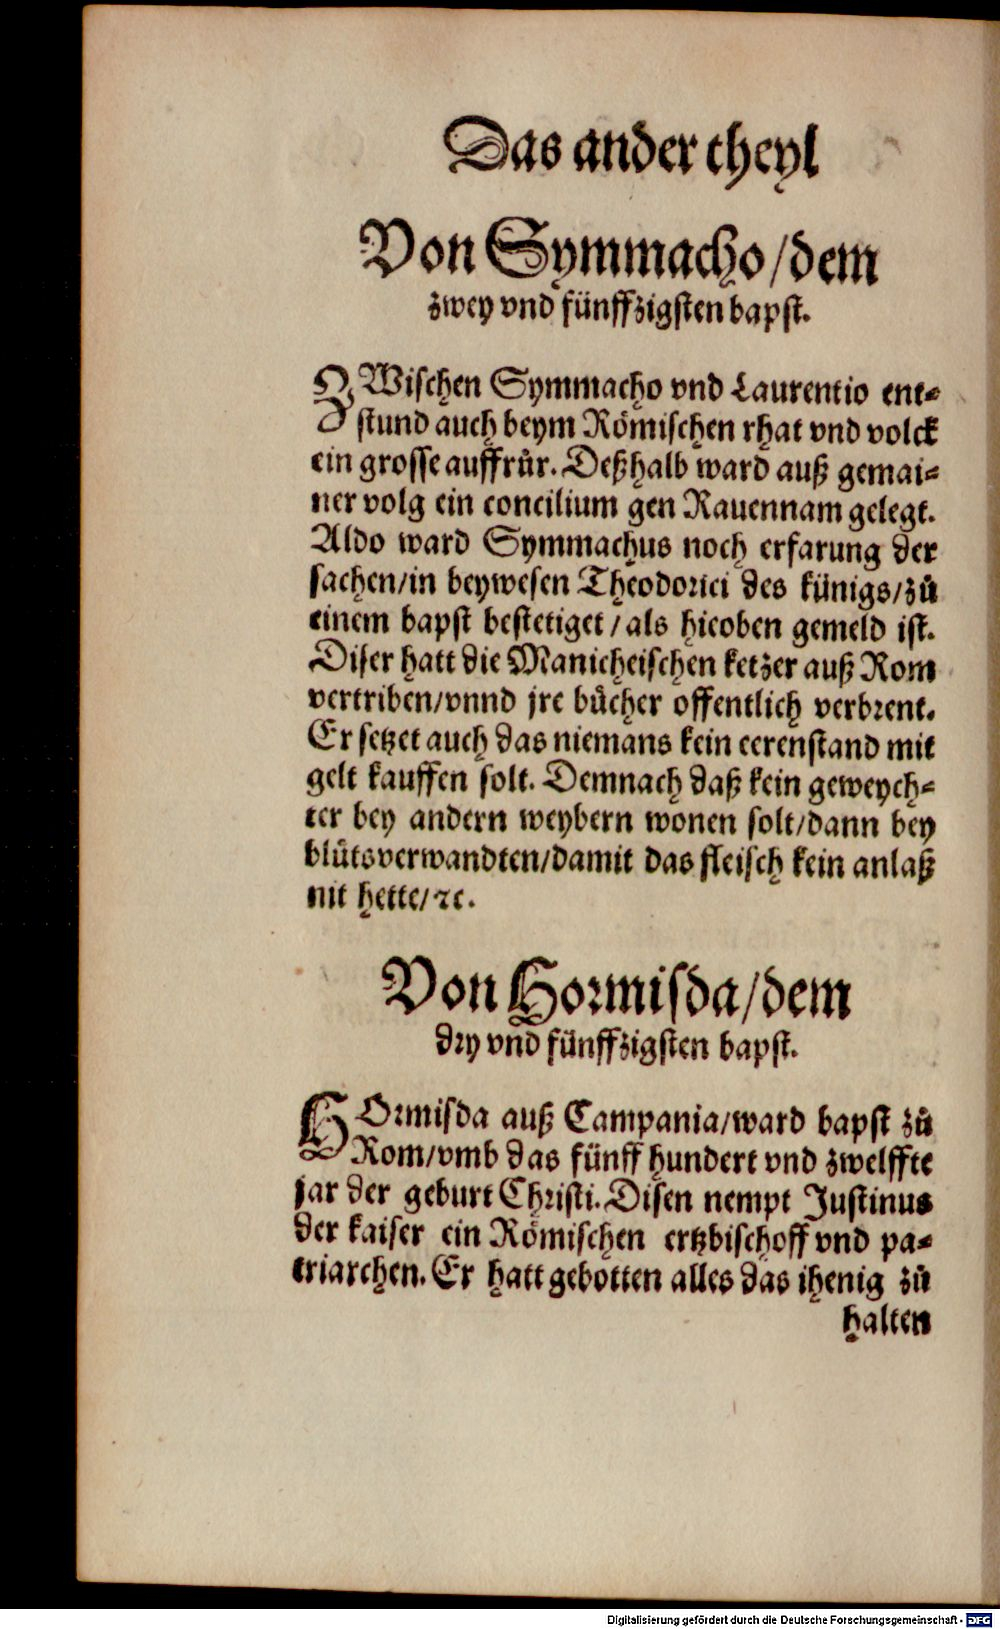 Das ander theyl
Von Symmacho/dem
zwey vnd fünffzigsten bapst.
ZWischen Symmacho vnd Laurentio ent⸗
stund auch beym Römischen rhat vnd volck
ein grosse auffrůr. Deßhalb ward auß gemai⸗
ner volg ein concilium gen Rauennam gelegt.
Aldo ward Symmachus noch erfarung der
sachen/in beywesen Theodorici des künigs/zů
einem bapst bestetiget/als hieoben gemeld ist.
Diser hatt die Manicheischen ketzer auß Rom
vertriben/vnnd jre bücher offentlich verbrent.
Er setzet auch das niemans kein eerenstand mit
gelt kauffen solt. Demnach daß kein geweych⸗
ter bey andern weybern wonen solt/dann bey
blůtsverwandten/damit das fleisch kein anlaß
nit hette/ꝛc.
Von Hormisda/dem
dry vnd fünffzigsten bapst.
HOrmisda auß Campania/ward bapst zů
Rom/vmb das fünff hundert vnd zwelffte
jar der geburt Christi. Disen nempt Justinus
der kaiser ein Römischen ertzbischoff vnd pa⸗
triarchen. Er hatt gebotten alles das ihenig zů
halten
Digitalisierung gefördert durch die Deutsche Forschungsgemeinschaft - DFG